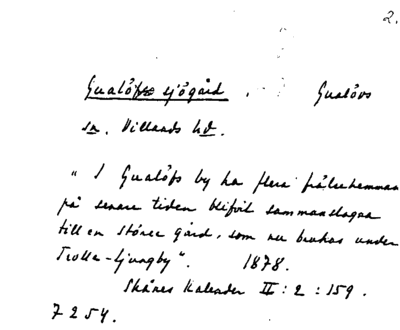 2.
Gualöfs sjögård. Gualövs
sn. Villands hd.
"I Gualöfs by ha flera frälsehemman
på senare tiden blifvit sammanslagna
till en större gård, som nu brukas under
Trolle-Ljungby". 1878.
Skånes Kalender II : 2 : 159.
7254.